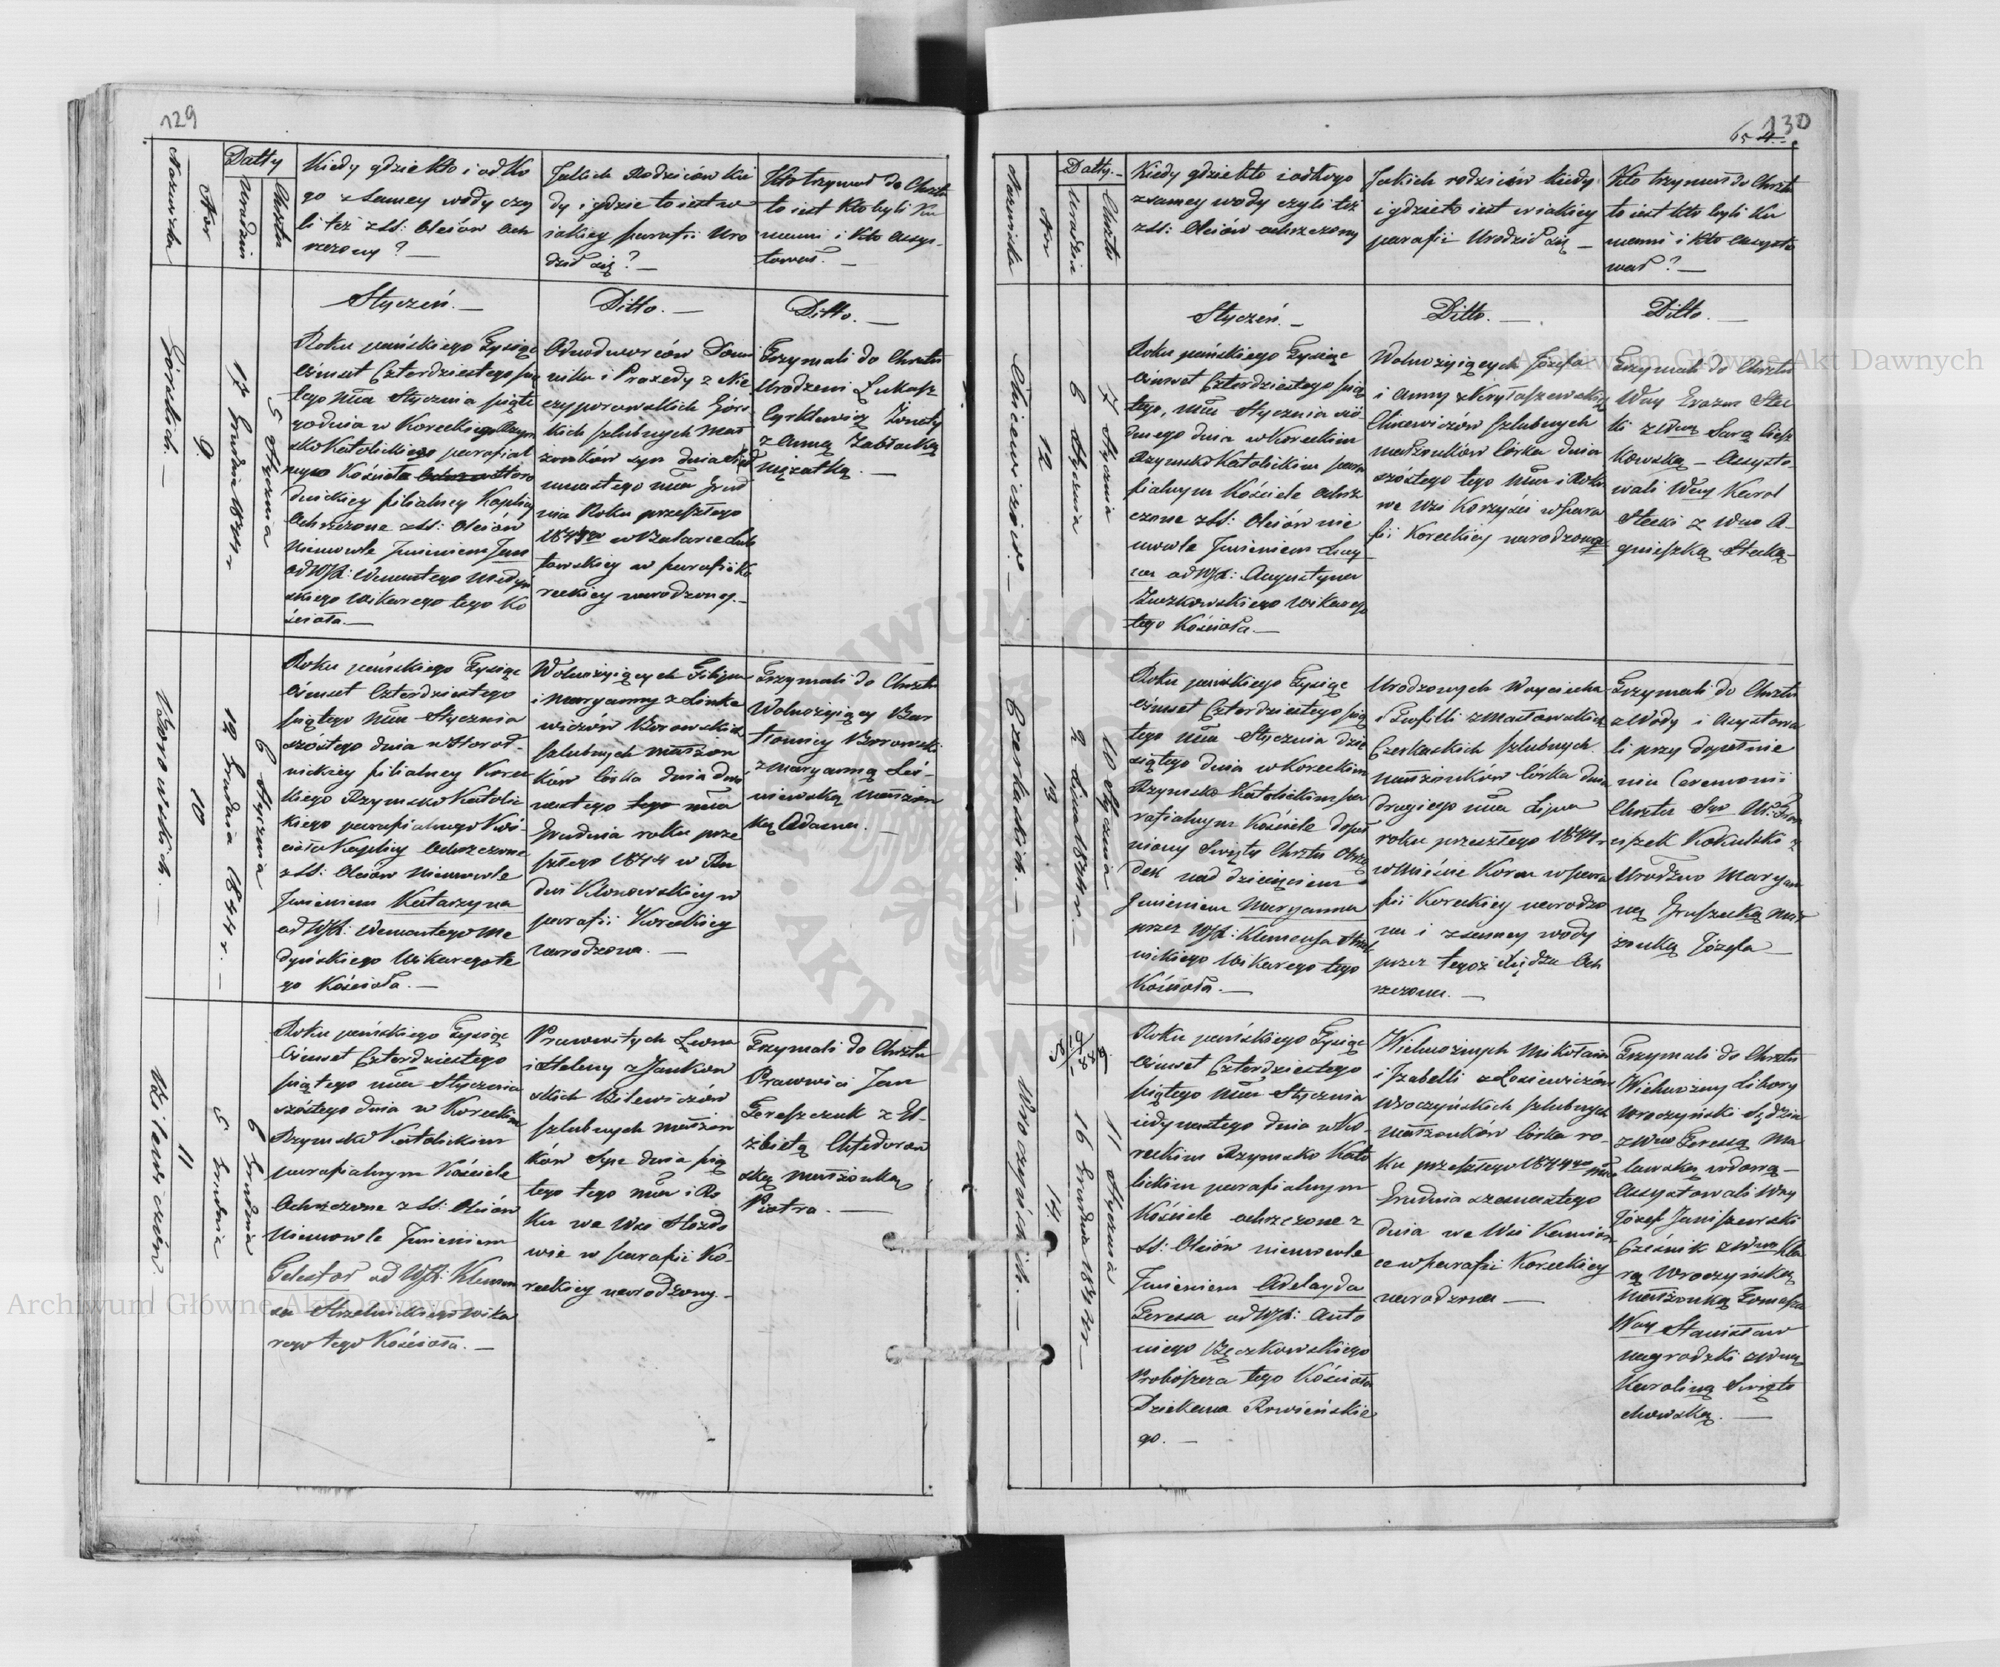 129
Nazwiska
Nror
Datty
Urodzin
Chrztu
Kiedy gdzie kto i od ko
go z samey wody czy
li téż z SS: Olejów och
rzczony? —
Jakich Rodziców kie
dy i gdzie to iest w
iakiey parafii Uro
dził się? —
Kto trzymał do Chrztu
to iest kto byli Ku
mami i kto assys-
tował. —
Górskich. —
9.
17 Grudnia 1844 r
5 Stycznia
Styczeń. —
Roku pańskiego Tysiąc
ośmset Czterdziestego pią
tego mca Stycznia piąte
go dnia w Koreckiego Rzym
sko Katolickiego parafial
nego Kościoła Horo
dnickiey filialney Kaplicy
Ochrzczone z SS: Olejów
Niemowle Imieniem Jan
od WJX: Wincentego Medyń
skiego Wikarego tego Ko
ścioła. —
Ditto. —
Odnodworców Domi
nika i Praxedy z Nie
czyporowskich Górs
kich szlubnych mał
żonków syn dnia Siód
mnastego mca Grud
nia Roku przeszłego
1844go
w parafii Ko
reckiey narodzony. —
Ditto. —
Trzymali do Chrztu
Urodzeni Łukasz
z Anną Zabłocką
mężatką. —
Borowskich. —
10
12 Grudnia 1844 r. —
6 Stycznia
Roku pańskiego Tysiąc
Ośmset Czterdziestego
piątego mca Stycznia
szóstego dnia w Horod-
nickiey filialney Korec
kiego Rzymsko Katolic
kiego parafialnego Koś-
cioła Kaplicy Ochrzczone
z SS: Olejów Niemowle
Imieniem Katarzyna
od WJX: Wincentego Me
dyńskiego Wikarego te
go Kościoła. —
Wolnożyiących Filipa
i Maryanny z Linke
wiczów Borowskich
szlubnych małżon
ków córka dnia dwó
nastego tego mca
Grudnia roku prze
szłego 1844 w Ru
dni Klonowskiey w
parafii Koreckiey
narodzona. —
Trzymali do Chrztu
Wolnożyiący Bar
tłomiey Borowski
z Maryanną Leś-
niewską małżon
ką Adama. —
Bilewiczów.
11
5 Grudnia
6 Grudnia
Roku pańskiego Tysiąc
Ośmset Czterdziestego
piątego mca Stycznia
szóstego dnia w Koreckim
Rzymsko Katolickim
parafialnym Kościele
Ochrzczone z SS: Olejów
Niemowle Imieniem
Telesfor od WJX: Klemen
sa Strzelnickiego Wika
rego tego Kościoła. —
Prawowitych Lwna
i Heleny z Jankow
skich Bilewiczów
szlubnych małżon
ków syn dnia pią
tego tego mca i Ro
ku we Wsi Hozdo
wie w parafii Ko-
reckiey narodzony. —
Trzymali do Chrztu
Prawowici Jan
Tereszczuk z El
żbietą Chfedorow
ską małżonką
Piotra. —
130
Nazwiska
Nro
Datty. —
Urodzin
Chrztu
Kiedy gdzie kto i od kogo
z samey wody czyli téż
z SS: Olejów ochrzczony
Jakich rodziców kiedy
i gdzie to iest w iakiey
parafii Urodził się —
Kto trzymał do Chrztu
to iest kto byli Ku
mami i kto Assysto
wał? —
Chicewiczów. —
12
6 Stycznia
7 Stycznia
Styczeń. —
Roku pańskiego Tysiąc
ośmset Czterdziestego pią
tego, mca Stycznia sió
dmego dnia w Koreckim
Rzymsko Katolickim para
fialnym Kościele Ochrz
czone z SS: Olejów nie
mowle Imieniem Lucy
na od WJX: Augustyna
Żuczkowskiego Wikarego
tego Kościoła. —
Ditto. —
Wolnożyiących Józefa
i Anny z Kryłaszewskich
Chicewiczów szlubnych
małżonków córka dnia
szóstego tego mca i Roku
we Wsi Korzyści w para
fii Koreckiey narodzona
Ditto. —
Trzymali do Chrztu
Wny Erazm Stec
ki z Wną Sarą Ciesz
kowską — Assysto-
wali Wny Karol
Stecki z Wną A-
gnieszką Stecką —
Czerkaskich. —
13
2 Lipca 1844 r. —
10 Stycznia
Roku pańskiego Tysiąc
ośmset Czterdziestego pią
tego mca Stycznia dzie
siątego dnia w Koreckim
Rzymsko Katolickim pa
rafialnym Kościele dopeł
niony Święty Chrztu Obrzą
dek nad dziecięciem
Imieniem Maryanna
przez WJX: Klemensa Strzel
nickiego Wikarego tego
Kościoła. —
Urodzonych Woyciecha
i Teofilli z Masłowskich
Czerkaskich szlubnych
małżonków Córka dnia
drugiego mca Lipca
roku przeszłego 1844 r
w Mieście Korcu w para
fii Koreckiey narodzo
na i z samey wody
przez tegoż Xiędza Och
rzczona. —
Trzymali do Chrztu
z Wody i Assystowa
li przy dopełnie
niu Ceremonii
Chrztu Sgo
ciszek Kokulski z
Urodzoną Maryan
ną Gruszecką mał
żonką Józefa —
Wroczyńskich. —
14.
16 Grudnia 1844 r —
11 Stycznia
Roku pańskiego Tysiąc
ośmset Czterdziestego
piątego mca Stycznia
iedynastego dnia w Ko-
reckim Rzymsko Kato
lickim parafialnym
Kościele ochrzczone z
SS: Olejów niemowle
Imieniem Adelayda
Teressa od WJX: Anto
niego Bęczkowskiego
Proboszcza tego Kościoła
Dziekana Rowieńskie
go. —
Wielmożnych Mikołaia
i Izabelli z Łosiewiczów
Wroczyńskich szlubnych
małżonków Córka ro-
ku przeszłego 1844go mca
Grudnia szesnastego
dnia we Wsi Kamion
ce w parafii Koreckiey
narodzona —
Trzymali do Chrztu
Wielmożny Libory
Wroczyński Sędzia
z Wną Teressą Ma
lawską wdową —
Assystowali Wny
Józef Janiszewski
Cześnik z Wną Kla
rą Wroczyńską
małżonką Tomasza
Wny Stanisław
Nagrodzki z Wną
Karoliną Święto
chowską. —
Archiwum Główne Akt Dawnych
Archiwum Główne Akt Dawnych